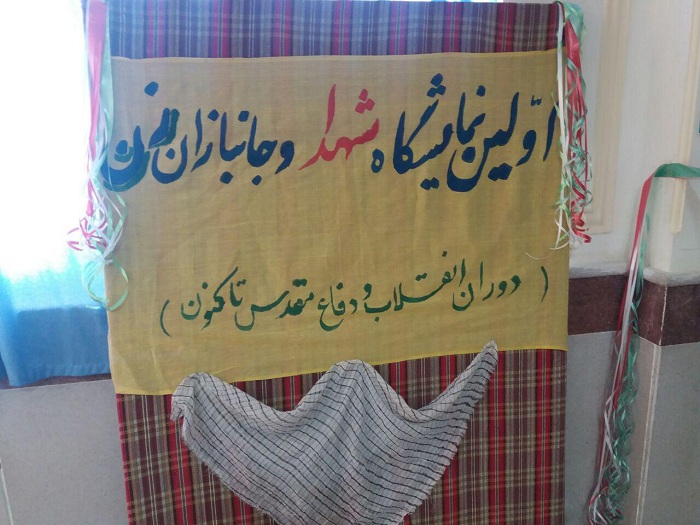 اوّلین نمایشگاه شهدا و جانبازان زن
( دوران انقلاب و دفاع مقدس تا کنون )